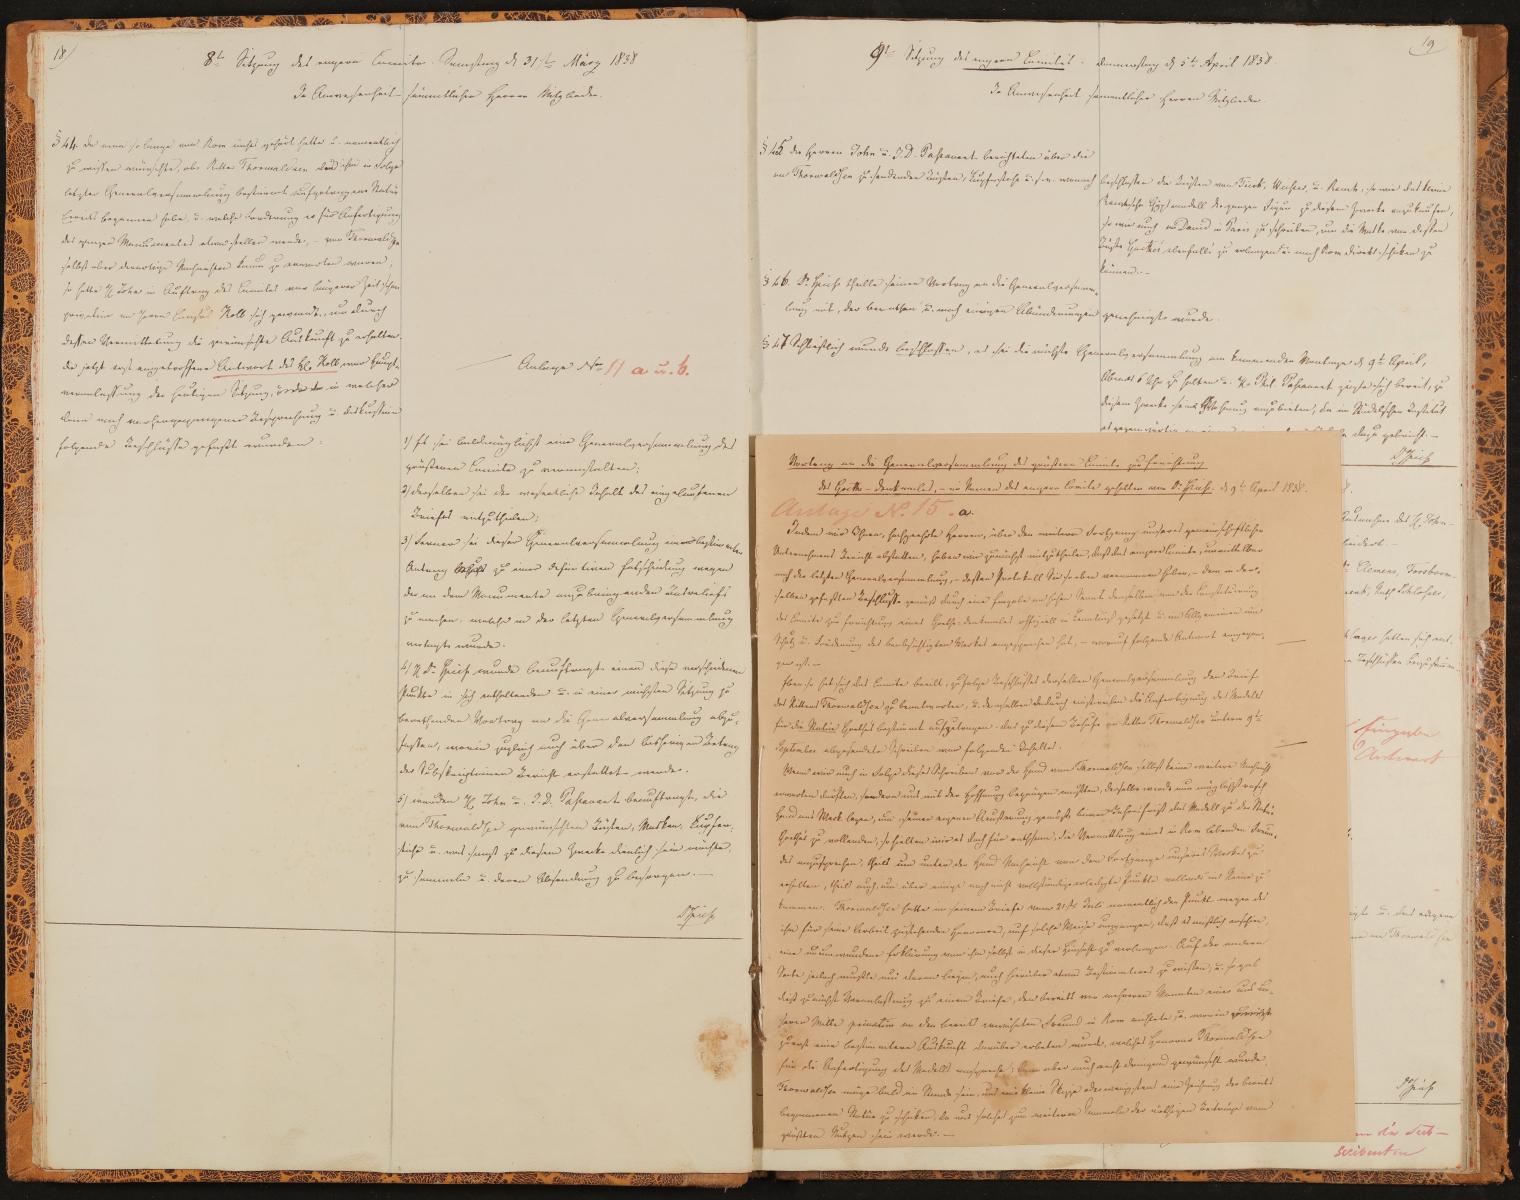 18/
8te Sitzung des engern Comite. Samstag d 31ten März 1838
In Anwesenheit sämmtlicher Herren Mitglieder.
§ 44. Da man so lange von Rom nichts gehört hatte u. namentlich
zu wissen wünschte, ob Ritter Thorwaldsen die ihm in Folge
letzter Generalversammlung bestimmt aufgetragene Statue
bereits begonnen habe, u. welche Forderung er für Anfertigung
des ganzen Monumentes etwa stellen werde, – von Thorwaldsen
selbst aber derartige Nachrichten kaum zu erwarten waren,
so hatte H. John im Auftrag des Comites vor längerer Zeit schon
privatim an Herrn Consul Kolb sich gewendet, um durch
dessen Vermittelung die gewünschte Auskunft zu erhalten.
Die jetzt erst eingetroffene Antwort des H. Kolb war Haupt-
veranlassung der heutigen Sitzung, in welcher
denn nach vorhergegangener Besprechung u. Diskussion
folgende Beschlüsse gefaßt wurden:
Anlage Nro. 11 a u. b.
1) Es sei baldmöglichst eine Generalversammlung des
größeren Comite zu veranstalten;
2) derselben sei der wesentliche Inhalt des eingelaufenen
Briefes mitzutheilen;
3) Ferner sei dieser Generalversammlung ein bestimmter
Antrag zu einer definitiven Entscheidung wegen
der an dem Monumente anzubringenden Basreliefs
zu machen, welche in der letzten Generalversammlung
vertagt wurde.
4) H Dr Spieß wurde beauftragt einen diese verschiedenen
Punkte in sich enthaltenden u. in einer nächsten Sitzung zu
berathenden Vortrag an die Generalversammlung abzu-
fassen, worin zugleich auch über den bisherigen Betrag
der Subskriptionen Bericht erstattet werde.
5) wurden H. John u. J. D. Passavant beauftragt, die
von Thorwaldsen gewünschten Büsten, Masken, Kupfer-
stiche u. was sonst zu diesem Zwecke dienlich sein möchte,
zu sammeln u. deren Absendung zu besorgen. —
Dr Spieß
19/
9te Sitzung des engern Comités. Donnerstag d 5ten April 1838.
In Anwesenheit sämmtlicher Herren Mitglieder.
§ 45 Die Herren John u. J. D. Passavant berichteten über die
an Thorwaldsen zu sendenden Büsten, Kupferstiche u. s. w. wonach
beschlossen die Büsten von Tieck, Weißer, u. Rauch, so wie das kleine
Rauchische Gypsmodell der ganzen Figur zu diesem Zwecke anzukaufen,
so wie auch an David in Paris zu schreiben, um die Maske von dessen
Büste Goethes ebenfalls zu erlangen u. nach Rom direkt schicken zu
können. —
§ 46. Dr Spieß theilte seinen Vortrag an die Generalversamm-
lung mit, der berathen u. nach einigen Abänderungen genehmigt wurde.
§ 47 Schließlich wurde beschlossen, es sei die nächste Generalversammlung am kommenden Montage d 9ten April,
Abends 6 Uhr zu halten u. H. Phil. Passavant zeigte sich bereit, zu
diesem Zwecke seine Wohnung anzubieten, da im Städelschen Institut
dazu gebricht. —
Dr Spieß
Vortrag an die Generalversammlung des größern Comite zur Errichtung
des Goethe-Denkmales, – im Namen des engern Comite gehalten von Dr. Spieß. d 9ten April 1838.
Anlage No. 15. a.
Indem wir Ihnen, hochgeehrte Herren, über den weitern Fortgang unseres gemeinschaftlichen
Unternehmens Bericht abstatten, haben wir zunächst mitzutheilen, daß das engere Comite, unmittelbar
nach der letzten Generalversammlung, – dessen Protokoll Sie so eben vernommen haben, – dem in der-
selben gefaßten Beschlusse gemäß durch eine Eingabe an hohen Senat denselben von der Constituirung
des Comite zur Errichtung eines Goethe-Denkmales officiell in Kenntniß gesetzt u. im Allgemeinen um
Schutz u. Förderung des beabsichtigten Werkes angesprochen hat, – worauf folgende Antwort eingegan-
gen ist. —
Eben so hat sich das Comite beeilt, zufolge Beschlusses derselben Generalversammlung den Brief
des Ritters Thorwaldsen zu beantworten, u. demselben die Anfertigung des Modells
für die Statue Goethes bestimmt aufzutragen. Das zu diesem Behufe an Ritter Thorwaldsen unterm 9ten
September abgesendete Schreiben war folgenden Inhaltes.
Wenn wir auch in Folge dieses Schreibens von der Hand von Thorwaldsen selbst keine weitere Nachricht
erwarten durften, sondern uns mit der Hoffnung begnügen mußten, derselbe werde nun möglichst rasch
Hand ans Werk legen, um seiner eigenen Äusserung gemäß binnen Jahresfrist das Modell zu der Statue
Goethes zu vollenden, so hielten wir es doch für rathsam, die Vermittlung eines in Rom lebenden Freun-
des anzusprechen, theils um unter der Hand Nachricht von dem Fortgange unseres Werkes zu
erhalten, theils auch, um über einige noch nicht vollständig erledigte Punkte vollends ins Reine zu
kommen. Thorwaldsen hatte in seinem Briefe vom 21ten Juli namentlich den Punkt wegen des
ihm für seine Arbeit zustehenden Honorars, auf solche Weise umgangen, daß es mißlich erschien,
eine unumwundene Erklärung von ihm selbst in dieser Hinsicht zu verlangen. Auf der andern
Seite jedoch mußte uns daran liegen, auch hierüber etwas Bestimmteres zu wissen, u. so gab
dieß zunächst Veranlassung zu einem Briefe, den bereits vor mehreren Monaten einer aus un-
serer Mitte privatim an den bereits erwähnten Freund in Rom richtete u. worin
zuerst eine bestimmtere Auskunft darüber erbeten wurde, welches Honorar Thorwaldsen
für die Anfertigung des Modells anspreche; dann aber auch recht dringend gewünscht wurde,
Thorwaldsen möge bald im Stande sein, uns eine kleine Skizze oder wenigstens eine Zeichnung der bereits
begonnenen Statue zu schicken, da uns solches zum weiteren Sammeln der nöthigen Beiträge vom
größten Nutzen sein werde. —
Ausnahme des H. John –
Clemens, Forsboom
Rath Schlosser,
hatten sich ent-
Beschlüssen beizustimmen
Eingabe
Antwort
u. das engere
an Thorwaldsen
Dr Spieß
an die Sub-
scribenten